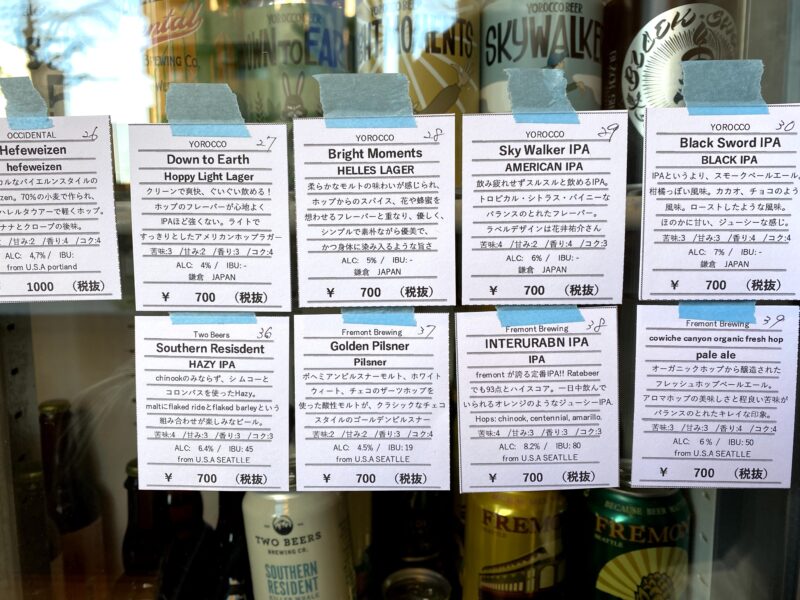 YOROCCO BEER
DOWN to EARTH
YOROCCO BEER
SKYWALKER
OCCIDENTAL 26
Hefeweizen
hefeweizen
カルなバイエルンスタイルの
70%の小麦で作られ、
ハレルタウアーで軽くホップ。
ナナとクローブの後味。
/甘み:2 /香り:4 /コク:4
ALC: 4,7%/ IBU:
from U.S.A portland
¥ 1000 (税抜)
YOROCCO 27
Down to Earth
Hoppy Light Lager
クリーンで爽快、ぐいぐい飲める!
ホップのフレーバーが心地よく
IPAほど強くない。ライトで
すっきりとしたアメリカンホップラガー
苦味:3 /甘み:2 /香り:3 /コク:3
ALC: 4% / IBU: -
鎌倉 JAPAN
¥ 700 (税抜)
YOROCCO 28
Bright Moments
HELLES LAGER
柔らかなモルトの味わいが感じられ、
ホップからのスパイス、花や蜂蜜を
想わせるフレーバーと重なり、優しく、
シンプルで素朴ながら優美で、
かつ身体に染み入るような旨さ
ALC: 5% / IBU: -
鎌倉 JAPAN
¥ 700 (税抜)
YOROCCO 29
Sky Walker IPA
AMERICAN IPA
飲み疲れせずスルスルと飲めるIPA。
トロピカル・シトラス・パイニーな
バランスのとれたフレーバー。
ラベルデザインは花井祐介さん
苦味:4 /甘み:2 /香り:4 /コク:3
ALC: 6% / IBU: -
鎌倉 JAPAN
¥ 700 (税抜)
YOROCCO 30
Black Sword IPA
BLACK IPA
IPAというより、スモークペールエール。
柑橘っぽい風味。カカオ、チョコのような
風味。ローストしたような風味。
ほのかに甘い、ジューシーな感じ。
苦味:3 /甘み:3 /香り:3 /コク:4
ALC: 7% / IBU: -
鎌倉 JAPAN
¥ 700 (税抜)
Two Beers 36
Southern Resisdent
HAZY IPA
chinookのみならず、シムコーと
コロンバスを使ったHazy。
maltにflaked rideとflaked barleyという
組み合わせが楽しみなビール。
苦味:4 /甘み:3 /香り:3 /コク:4
ALC: 6.4% / IBU: 45
from U.S.A SEATLLE
¥ 700 (税抜)
Fremont Brewing 37
Golden Pilsner
Pilsner
ボヘミアンピルスナーモルト、ホワイト
ウィート、チェコのザーツホップを
使った酸性モルトが、クラシックなチェコ
スタイルのゴールデンピルスナー
苦味:2 /甘み:2 /香り:3 /コク:2
ALC: 4.5% / IBU: 19
from U.S.A SEATLLE
¥ 700 (税抜)
Fremont Brewing 38
INTERURABN IPA
IPA
fremont が誇る定番IPA!! Ratebeer
でも93点とハイスコア。一日中飲んで
いられるオレンジのようなジューシーIPA.
Hops: chinook, centennial, amarillo.
苦味:4 /甘み:3 /香り:3 /コク:4
ALC: 8.2% / IBU: 80
from U.S.A SEATLLE
¥ 700 (税抜)
39
cowiche canyon organic fresh hop
pale ale
オーガニックホップから醸造された
フレッシュホップペールエール。
アロマホップの美味しさと程良い苦味が
バランスのとれたキレイな印象。
苦味:3 /甘み:3 /香り:4 /コク:4
ALC: 6% / IBU: 50
from U.S.A SEATLLE
¥ 700 (税抜)
TWO BEERS
BREWING CO.
SOUTHERN
RESIDENT
KILLER WHALE
FREMO
BECAUSE BEER
SEATTLE
FREMO